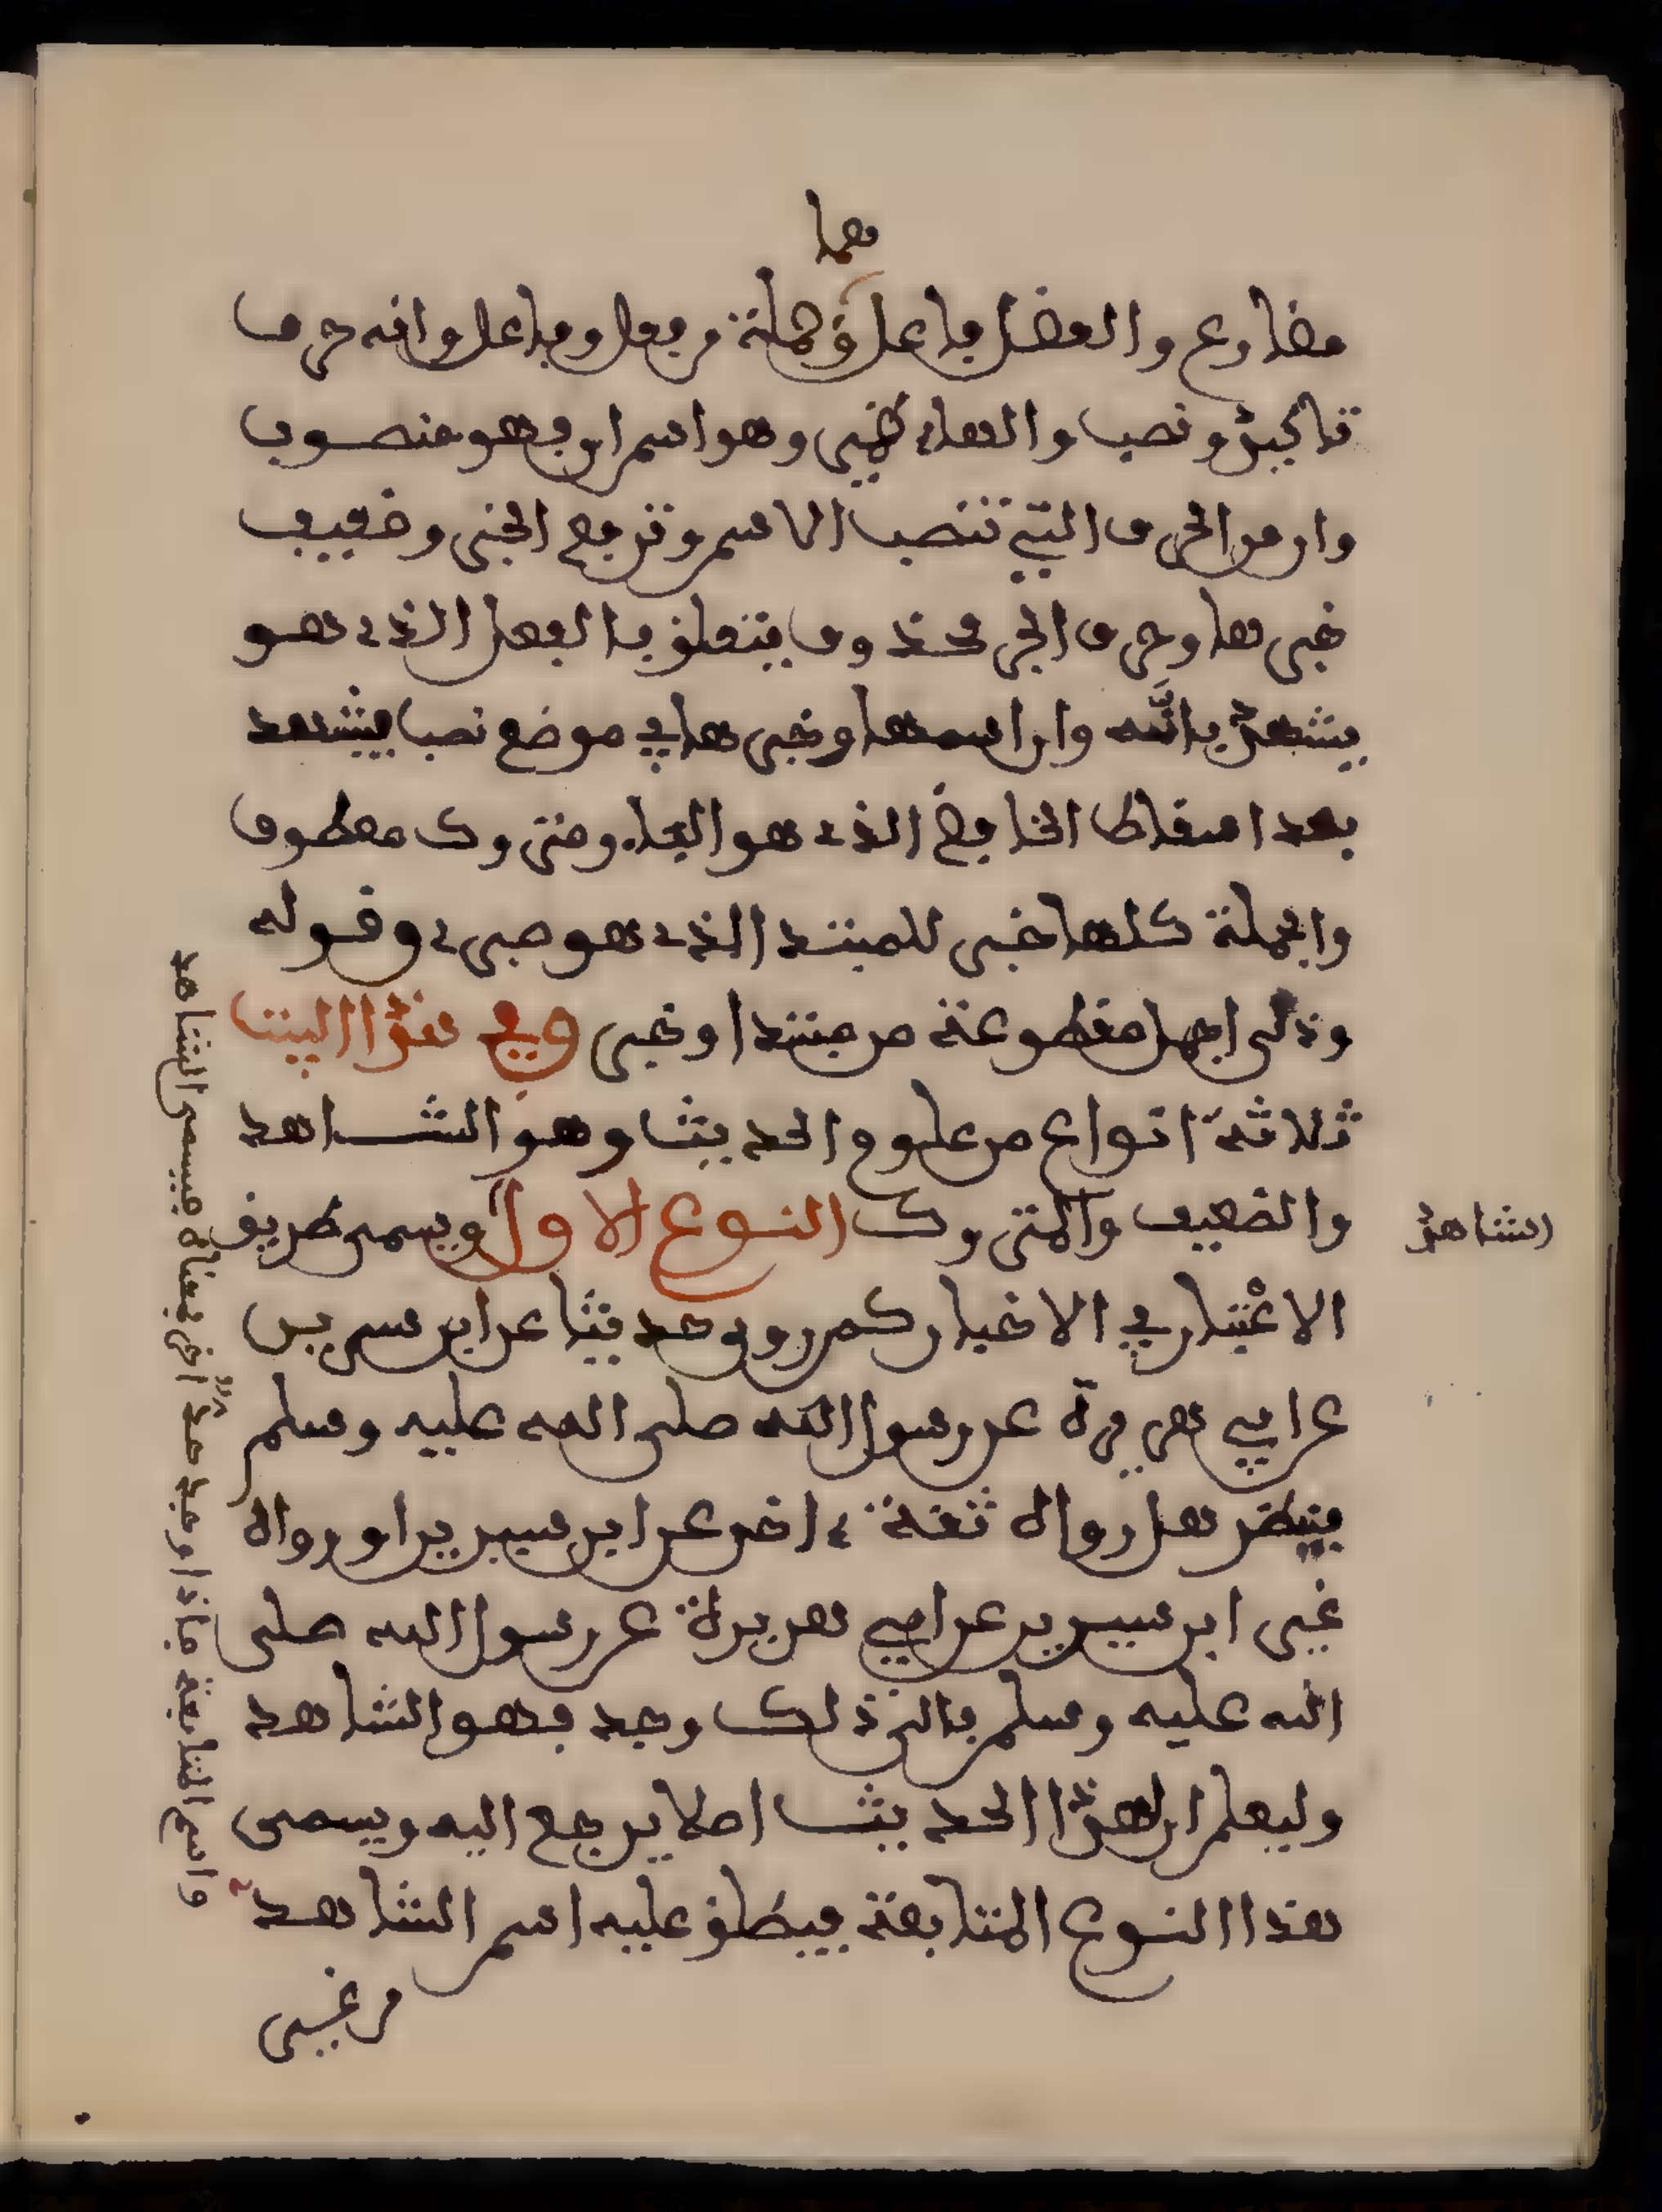 فهما
مضارع والعضل فاعل وجملة من فعل وفاعل وانه حرف
تاكيد ونصب والهاء ضمير وهو اسم ان فهو منصوب
وان من الحروف التي تنصب الاسم وترفع الخبر وضعيف
خبرها وحرف الجر محذوف يتعلق بالفعل الذي هو
يشهد بانه وان اسمها وخبرها في موضع نصب بيشهد
بعد اسقاط الخافض الذي هو الباء ومتروك معطوف
والجملة كلها خبر للمبتدا الذي هو صبري وقوله
وذلي اجمل مقطوعة من مبتدا وخبر وفي هذا البيت
ثلاثة انواع من علوم الحديث وهو الشاهد
والضعيف والمتروك النوع الاول ويسمى طريق
الاعتبار في الاخبار كمن روى حديثا عن ابن سرين
عن ابي هريرة عن رسول الله صلى الله عليه وسلم
فينظر هل رواه ثقة ءاخر عن ابن سيرين او رواه
غير ابن سيرين عن ابي هريرة عن رسول الله صلى
الله عليه وسلم فان ذلك وجد فهو الشاهد
وليعلم ان لهذا الحديث اصلا يرجع اليه ويسمى
هذا النوع المتابعة فيطلق عليه اسم الشاهد
من غير
الشاهد
واسم المتابعة فاذا وجد حديث اخر بمعناه فيسمى الشاهد